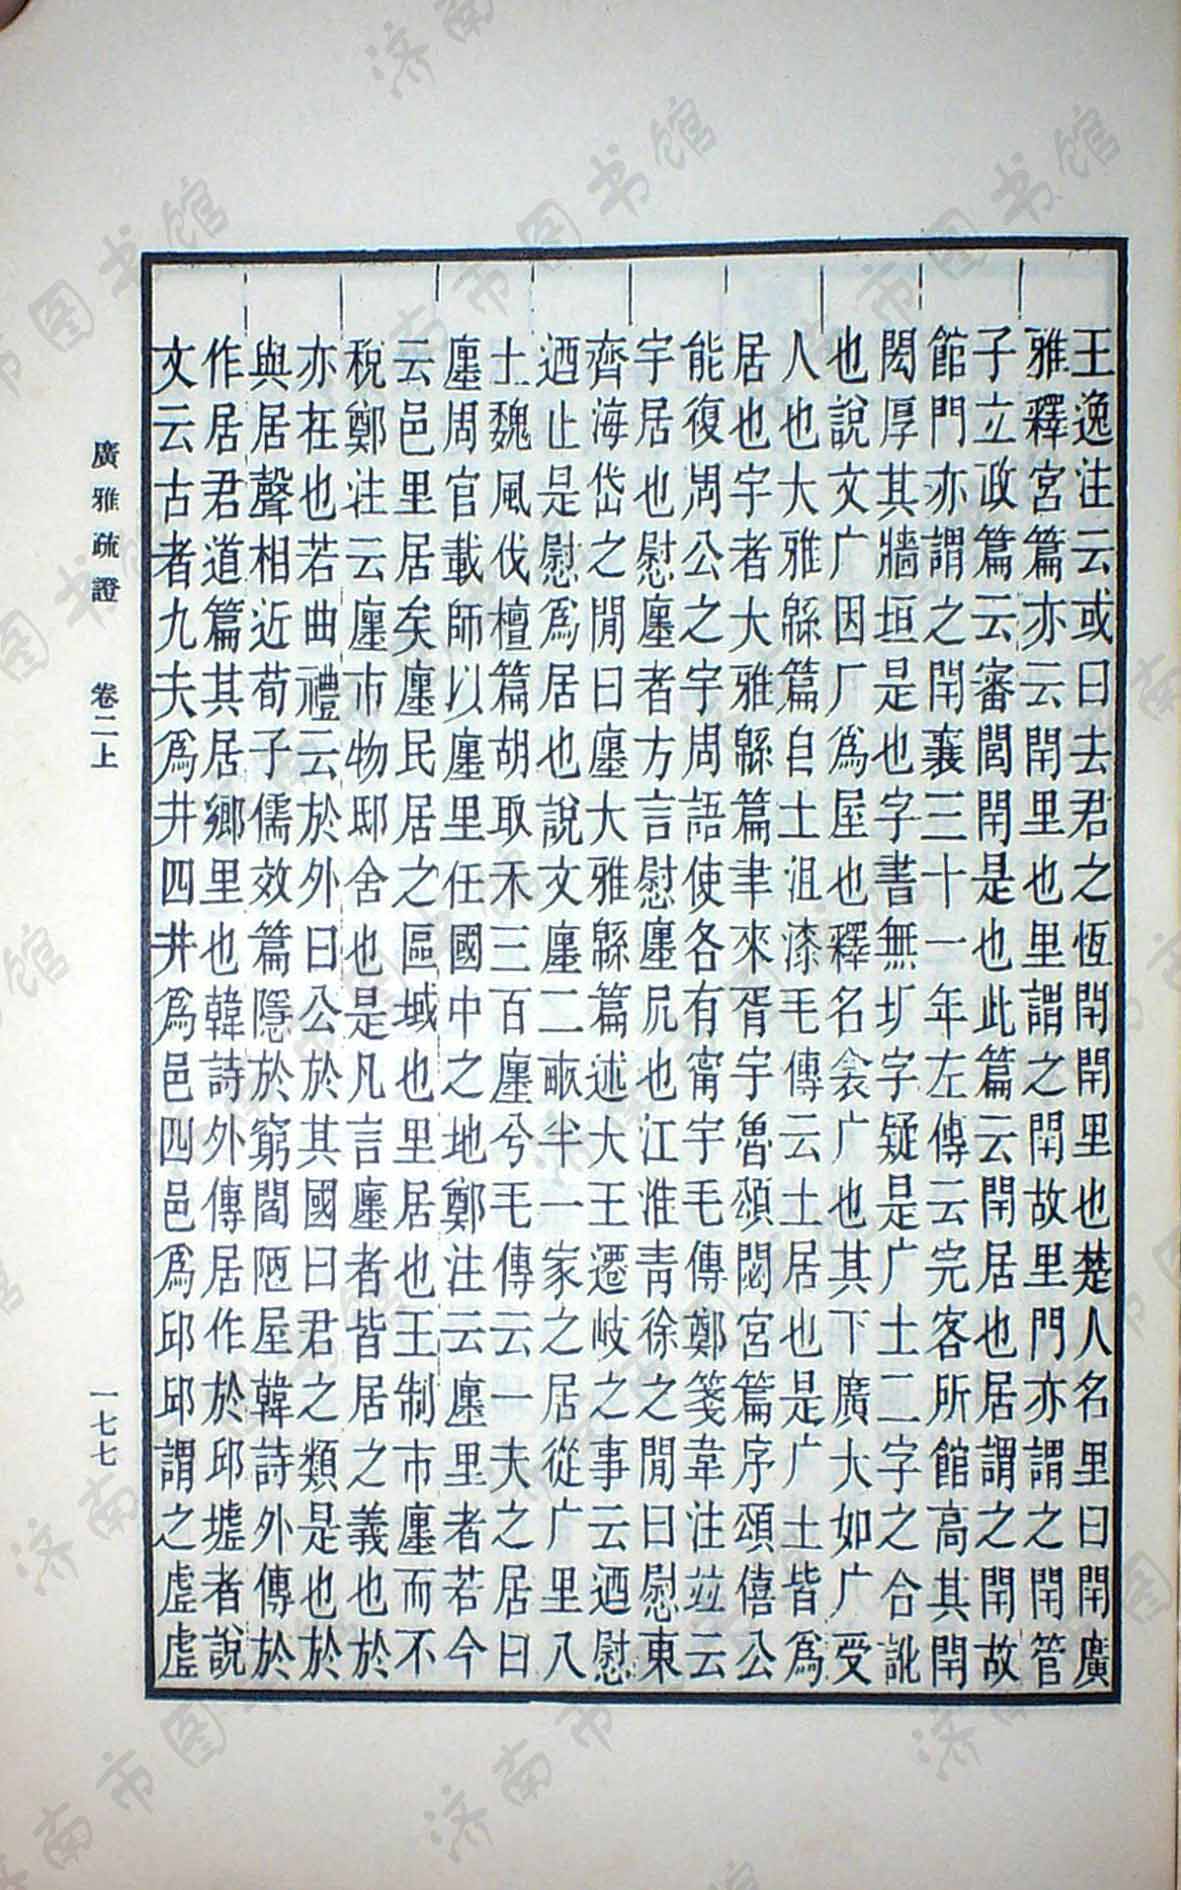 王逸注云或曰去君之恆閈閈里也楚人名里曰閈廣
雅釋宮篇亦云閈里也里謂之閈故里門亦謂之閈管
子立政篇云審閭閈是也此篇云閈居也居謂之閈故
館門亦謂之閈襄三十一年左傳云完客所館高其閈
閎厚其牆垣是也字書無圹字疑是广土二字之合訛
也說文广因厂為屋也釋名衾广也其下廣大如广受
人也大雅緜篇自土沮漆毛傳云土居也是广土皆為
居也宇者大雅緜篇聿來胥宇魯頌閟宮篇序頌僖公
能復周公之宇周語使各有甯宇毛傳鄭箋韋注竝云
宇居也慰廛者方言慰廛凥也江淮青徐之閒曰慰東
齊海岱之閒曰廛大雅緜篇述大王遷岐之事云迺慰
迺止是慰為居也說文廛二畝半一家之居從广里八
土魏風伐檀篇胡取禾三百廛兮毛傳云一夫之居曰
廛周官載師以廛里任國中之地鄭注云廛里者若今
云邑里居矣廛民居之區域也里居也王制市廛而不
稅鄭注云廛市物邸舍也是凡言廛者皆居之義也於
亦在也若曲禮云於外曰公於其國曰君之類是也於
與居聲相近荀子儒效篇隱於窮閻陋屋韓詩外傳於
作居君道篇其居鄉里也韓詩外傳居作於邱墟者說
文云古者九夫為井四井為邑四邑為邱邱謂之虛虛
廣雅疏證 卷二上 一七七
济南市图书馆